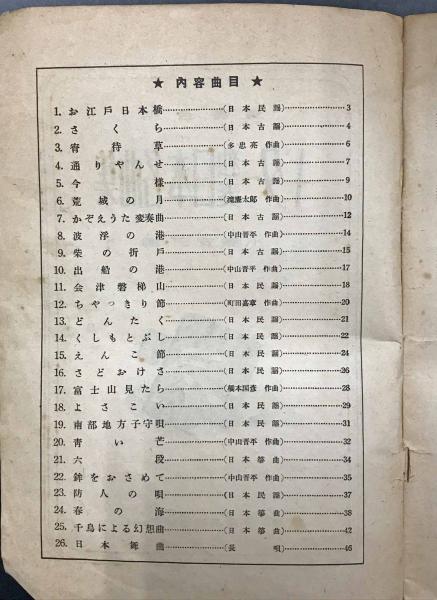 ★ 內容曲目 ★
1. お江戸日本橋……(日本民謡)……3
2. さくら……(日本古謡)……4
3. 宵待草……(多忠亮 作曲)……6
4. 通りやんせ……(日本古謡)……7
5. 今様……(日本古謡)……9
6. 荒城の月……(滝廉太郎 作曲)……10
7. かぞえうた変奏曲……(日本古謡)……12
8. 波浮の港……(中山晋平 作曲)……14
9. 柴の折戸……(日本古謡)……15
10. 出船の港……(中山晋平 作曲)……17
11. 会津磐梯山……(日本民謡)……18
12. ちやっきり節……(町田嘉章 作曲)……20
13. どんたく……(日本民謡)……21
14. くしもとぶし……(日本民謡)……22
15. えんこ節……(日本民謡)……24
16. さどおけさ……(日本民謡)……26
17. 富士山見たら……(橋本国彦 作曲)……28
18. よさこい……(日本民謡)……29
19. 南部地方子守唄……(日本民謡)……31
20. 青い芒……(中山晋平 作曲)……32
21. 六段……(日本箏曲)……34
22. 鉾をおさめて……(中山晋平 作曲)……35
23. 防人の唄……(日本民謡)……37
24. 春の海……(日本箏曲)……38
25. 千鳥による幻想曲……(日本箏曲)……42
26. 日本舞曲……(長唄)……46